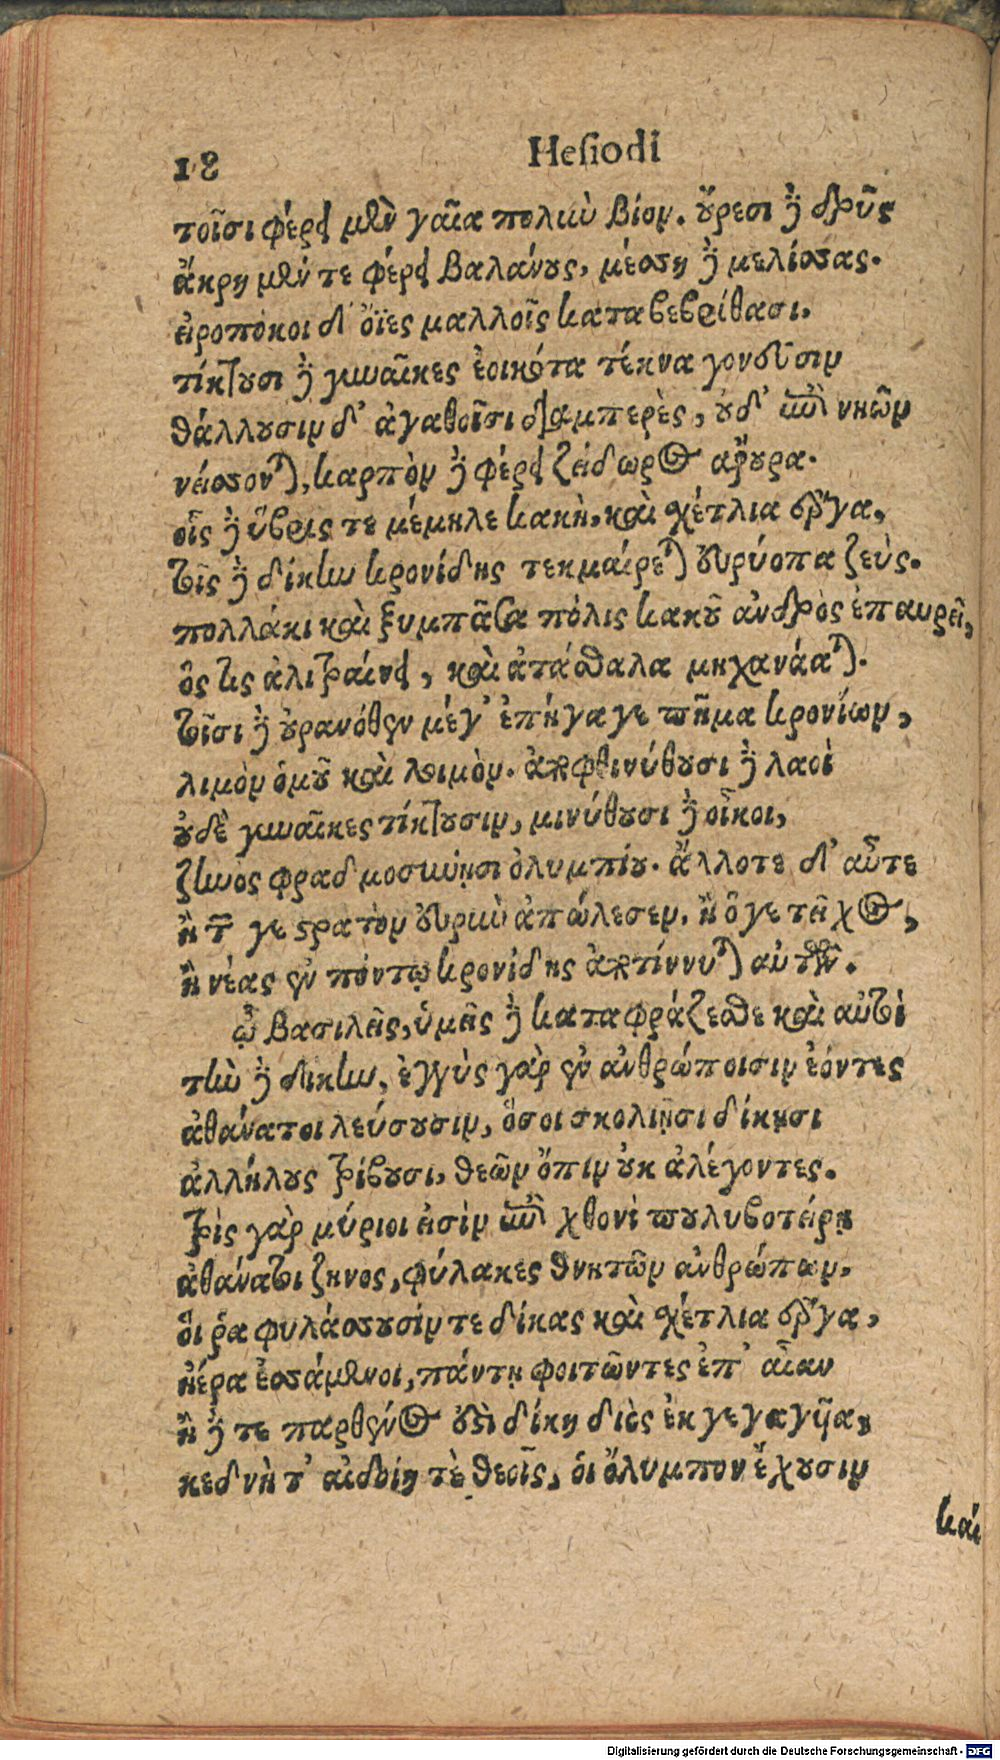 18 Hesiodi
τοῖσι φέρει μὲν γαῖα πολὺν βίον. οὔρεσι δὲ δρῦς
ἄκρη μέν τε φέρει βαλάνους, μέσση δὲ μελίσσας.
εἰροπόκοι δ' ὄϊες μαλλοῖς καταβεβρίθασι.
τίκτουσι δὲ γυναῖκες ἐοικότα τέκνα γονεῦσιν
θάλλουσιν δ' ἀγαθοῖσι διαμπερὲς, οὐδ' ἐπὶ νηῶν
νείσσονται, καρπὸν δὲ φέρει ζείδωρος ἄρουρα.
οἷς δὲ ὕβρις τε μέμηλε κακὴ, καὶ σχέτλια ἔργα,
τοῖς δὲ δίκην κρονίδης τεκμαίρεται εὐρύοπα ζεὺς.
πολλάκι καὶ ξυμπᾶσα πόλις κακοῦ ἀνδρὸς ἐπαυρεῖ,
ὅς τις ἀλιτραίνει, καὶ ἀτάσθαλα μηχανάαται.
τοῖσι δὲ οὐρανόθεν μέγ' ἐπήγαγε πῆμα κρονίων,
λιμὸν ὁμοῦ καὶ λοιμὸν. ἀποφθινύθουσι δὲ λαοὶ
οὐδὲ γυναῖκες τίκτουσιν, μινύθουσι δὲ οἶκοι,
ζηνὸς φραδμοσύνῃσι ὀλυμπίου. ἄλλοτε δ' αὖτε
ἢ τῶν γε στρατὸν εὐρὺν ἀπώλεσεν, ἢ ὅγε τεῖχος,
ἢ νέας ἐν πόντῳ κρονίδης ἀποτίννυται αὐτῶν.
ὦ βασιλεῖς, ὑμεῖς δὲ καταφράζεσθε καὶ αὐτοὶ
τὴν δὲ δίκην, ἐγγὺς γὰρ ἐν ἀνθρώποισιν ἐόντες
ἀθάνατοι λεύσουσιν, ὅσοι σκολιῇσι δίκῃσι
ἀλλήλους τρίβουσι, θεῶν ὄπιν οὐκ ἀλέγοντες.
τρὶς γὰρ μύριοι εἰσὶν ἐπὶ χθονὶ πουλυβοτείρῃ
ἀθάνατοι ζηνος, φύλακες θνητῶν ἀνθρώπων,
οἵ ῥα φυλάσσουσίν τε δίκας καὶ σχέτλια ἔργα,
ἠέρα ἑσσάμενοι, πάντῃ φοιτῶντες ἐπ' αἶαν
ἢ δέ τε παρθένος ἐστὶ δίκη διὸς ἐκγεγαγυῖα,
κεδνὴ τ' αἰδοίη τὲ θεοῖς, ὁι ὄλυμπον ἔχουσιν
καὶ
Digitalisierung gefördert durch die Deutsche Forschungsgemeinschaft - DFG